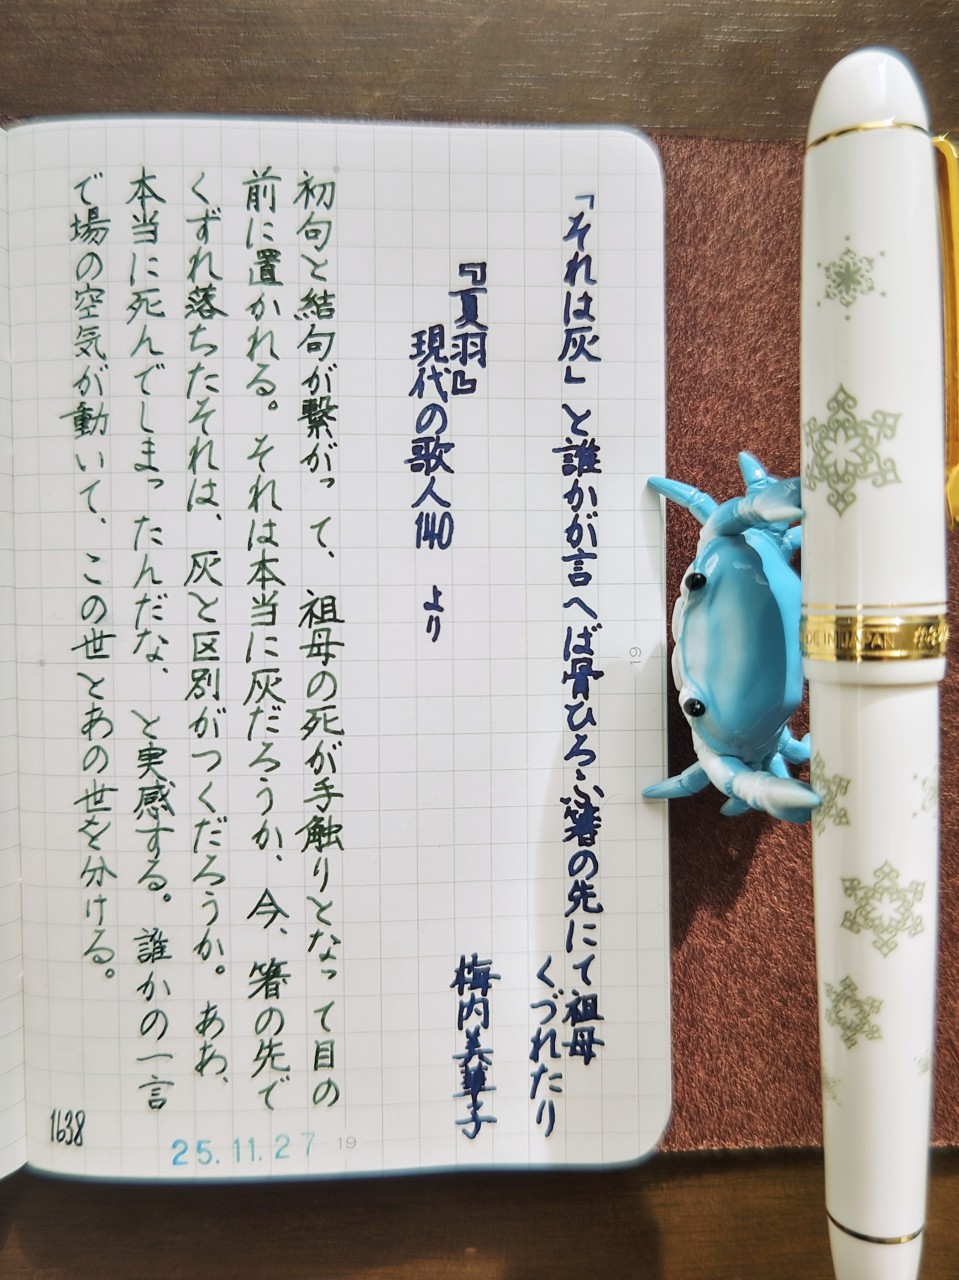 「それは灰」と誰かが言へば骨ひろふ箸の先にて祖母
くづれたり
『夏羽』
梅内美華子
現代の歌人140 より
初句と結句が繋がって、祖母の死が手触りとなって目の
前に置かれる。それは本当に灰だろうか、今、箸の先で
くずれ落ちたそれは、灰と区別がつくだろうか。ああ、
本当に死んでしまったんだな、と実感する。誰かの一言
で場の空気が動いて、この世とあの世を分ける。
1638
25.11.27
19
19
DE IN JAPAN